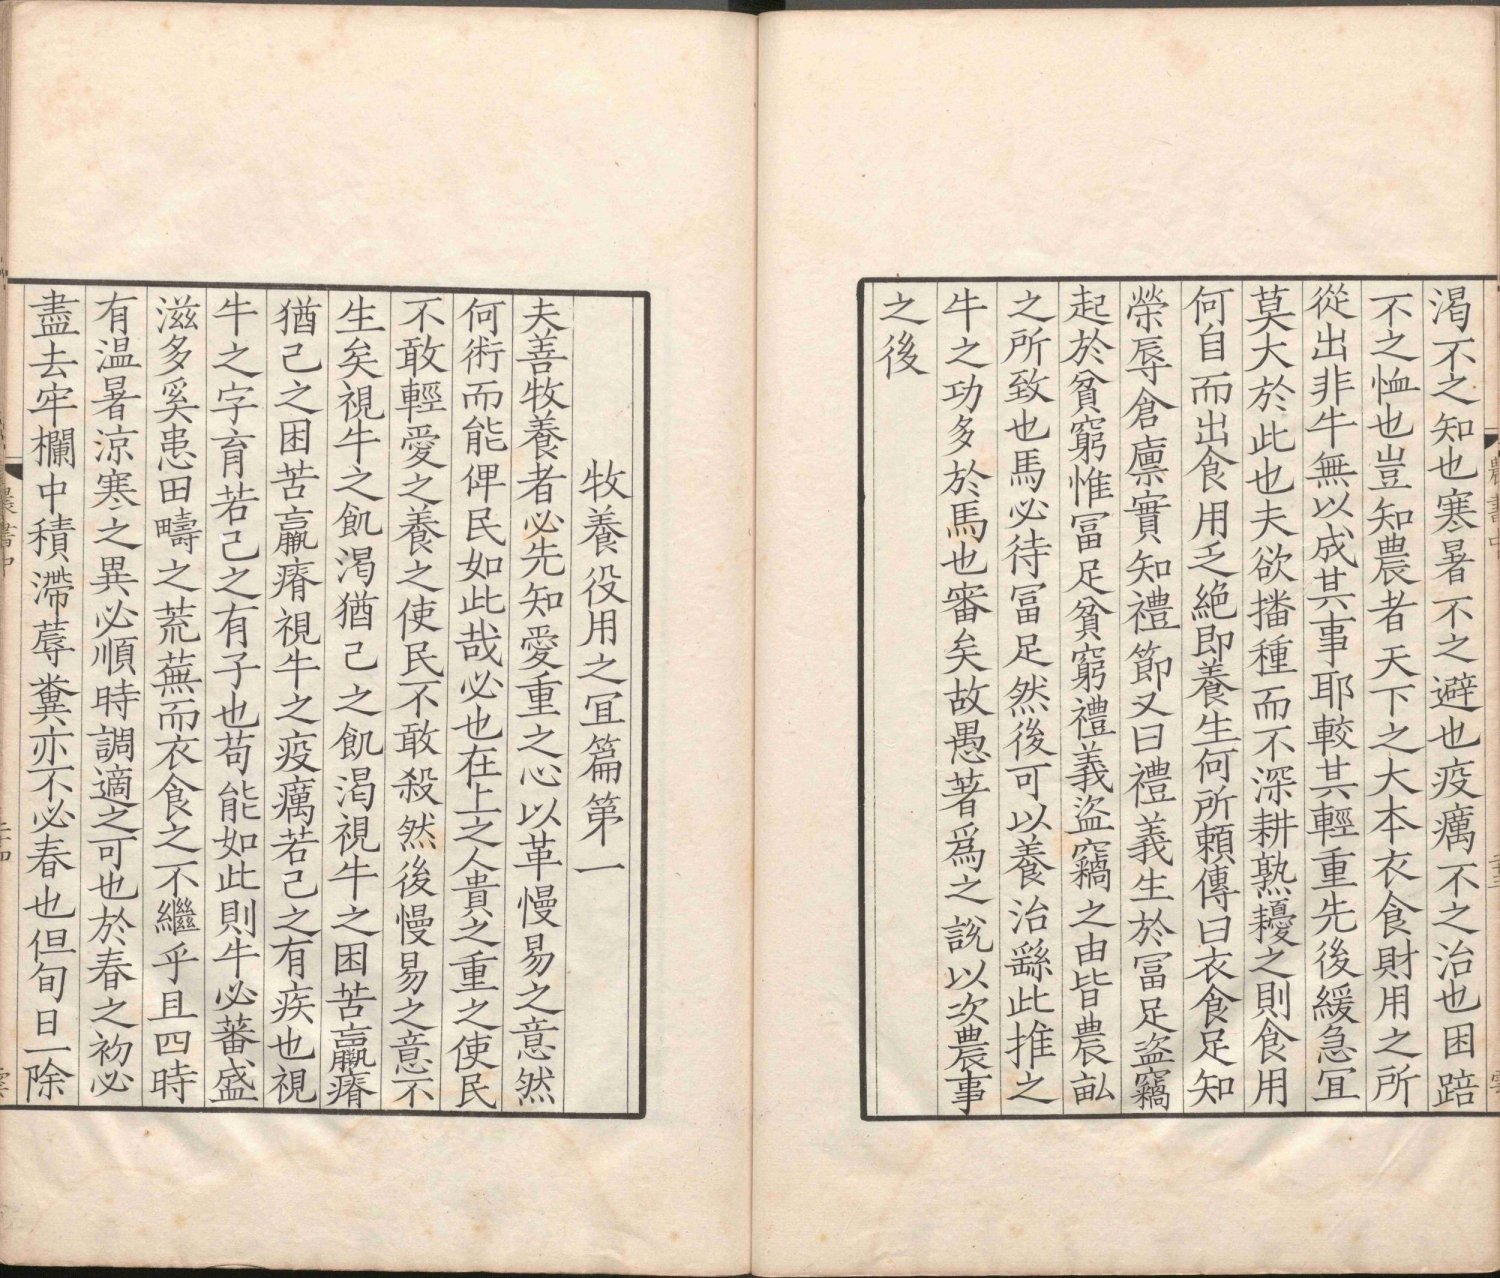 渴不之知也寒暑不之避也疫癘不之治也困踣
不之恤也豈知農者天下之大本衣食財用之所
從出非牛無以成其事耶較其輕重先後緩急冝
莫大於此也夫欲播種而不深耕熟耰之則食用
何自而出食用乏絕即養生何所賴傳曰衣食足知
榮辱倉廩實知禮節又曰禮義生於冨足盗竊
起於貧窮惟冨足貧窮禮義盗竊之由皆農畆
之所致也馬必待冨足然後可以養治繇此推之
牛之功多於馬也審矣故愚著爲之說以次農事
之後
牧養役用之冝篇第一
夫善牧養者必先知愛重之心以革慢易之意然
何術而能俾民如此哉必也在上之人貴之重之使民
不敢輕愛之養之使民不敢殺然後慢易之意不
生矣視牛之飢渴猶己之飢渴視牛之困苦羸瘠
猶己之困苦羸瘠視牛之疫癘若己之有疾也視
牛之字育若己之有子也苟能如此則牛必蕃盛
滋多奚患田疇之荒蕪而衣食之不繼乎且四時
有温暑涼寒之異必順時調適之可也於春之初必
盡去牢欄中積滯蓐糞亦不必春也但旬日一除
農書中
農書中